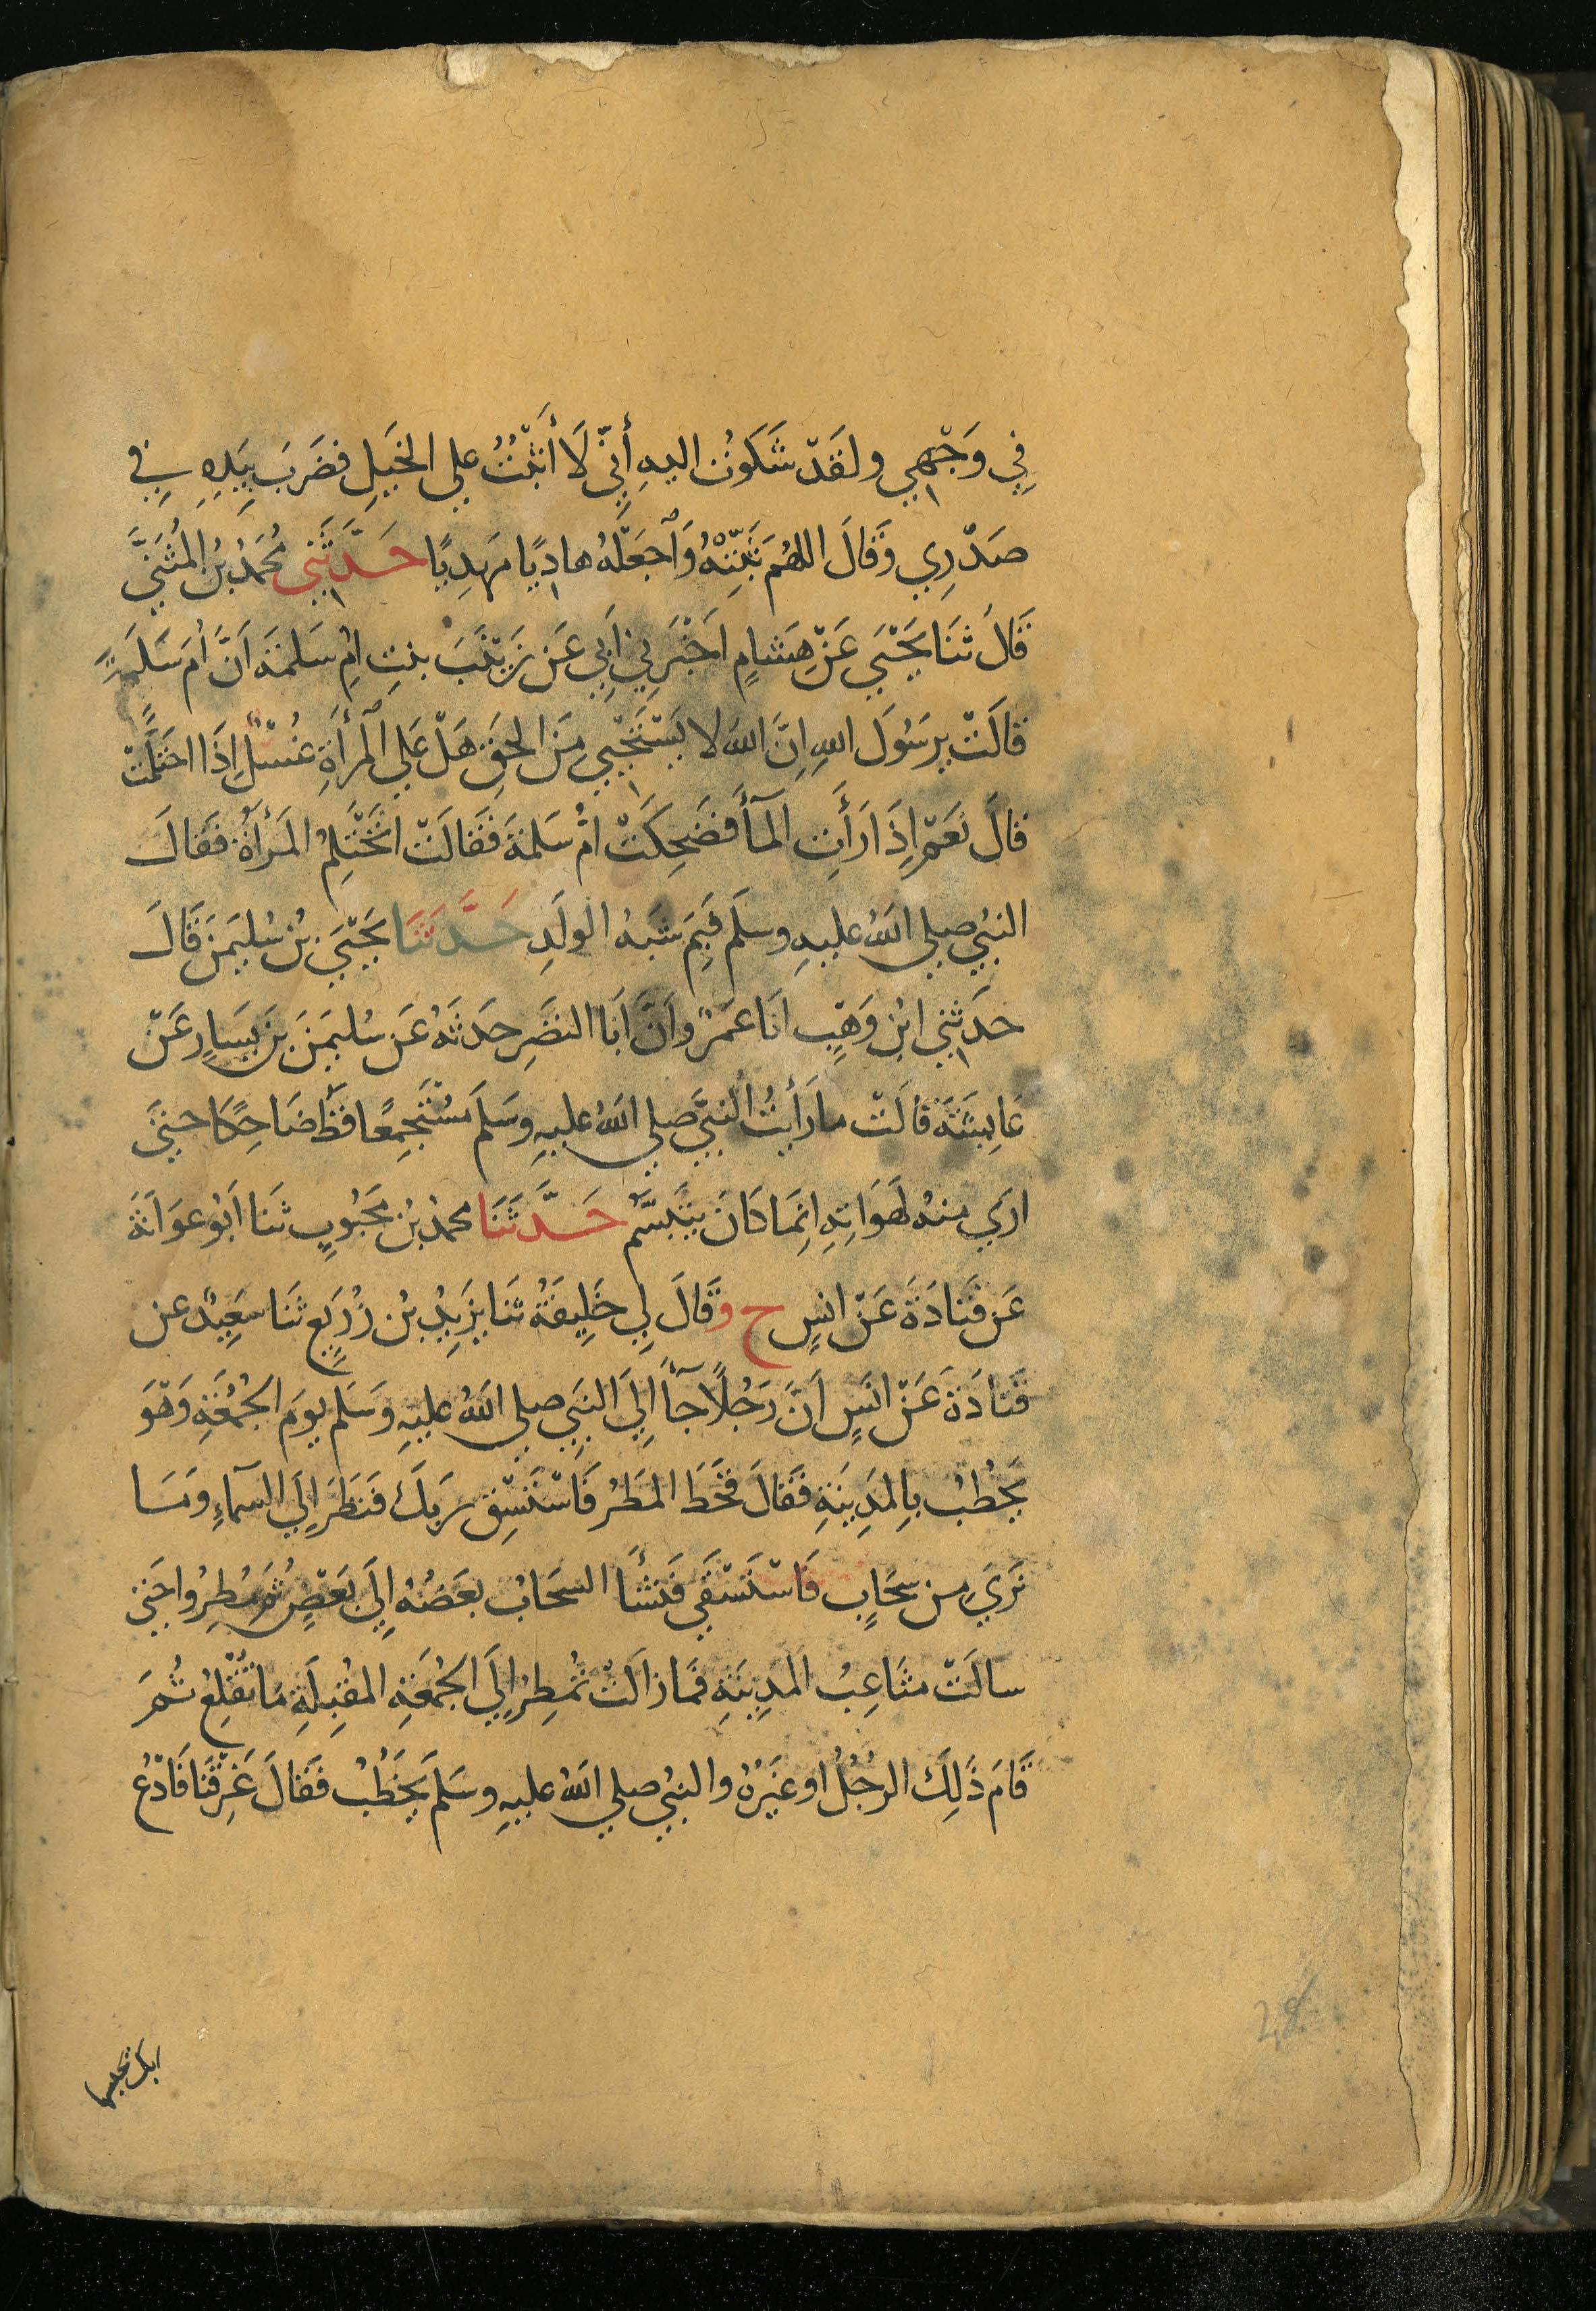 فِي وَجْهِي ولقَدْ شَكَوتُ اليهِ أَنِّي لَا أَثْبُتُ علي الخَيلِ فضَرَبَ بيَدِهِ فِي
صَدْرِي وَقَالَ اللهُم ثَبِّتْهُ وَٱجعَلْهُ هادِيًا مَهدِيًا حَدَّثَنِي مُحَمدُ بنُ المُثَنيَّ
قَالَ ثنَا يَحْيَي عَنْ هِشامٍ اَخْبَرَنِي اَبِي عَن زَيْنَبَ بنتِ امِ سَلمَةَ اَنَّ اُمَ سَلَمَةَ
قالَتْ يرسُولَ اللهِ اِنَّ اللهَ لا يَسْتَحْيِي مِنَ الحَقِ هَلْ عَلي ٱلمرأَةِ غُسْلٌ اِذَا احتَلَمَتْ
قالَ نَعَمْ اِذَا رَأَتِ المآَ فضَحِكَتْ امُ سَلمَةَ فَقَالَتْ اتَحْتَلِمُ المَرأَةُ فقَالَ
النبيُ صلي اللهُ عليهِ وسلَم فَبِمَ شَبَهُ الولَدِ حَدَّثَنَا يَحْيَي بْنُ سُليمَنَ قَالَ
حدَثنِي ابْنُ وَهْبٍ انَا عَمْرٌو اَنَّ اَبَا النضْرِ حدَثَهُ عَن سُليمَنَ بنِ يَسَارٍ عَنْ
عَايشَةَ قالَتْ ما رَأَيتُ النبيَّ صلي اللهُ عليهِ وسَلَم مُسْتَجْمِعًا قطُّ ضَاحِكًا حتيَّ
ارَي منهُ لَهَوَاتِهِ انَمَا كَانَ يتَبَسَّمُ حَدَّثَنَا محمدُ بنُ مَحْبُوبٍ ثنَا اَبُو عوَانَةَ
عَن قَتادَةَ عَنْ انسٍ ح وقَالَ لِي خَلِيفَةُ ثنَا يَزِيدُ بْنُ زُرَيعٍ ثنَا سَعِيدٌ عن
قَتادَةَ عَنْ انَسٍ اَنَّ رَجُلًا جآَ اِلَي النبَيِ صلي اللهُ عليهِ وَسَلَم يومَ الجُمُعَةِ وَهْوَ
يَخْطُبُ بِالمَدِينَةِ فقَالَ قحَطَ المطَرُ فَاسْتَسْقِ رَبَكَ فنَظَرَ اِلَي السمآءِ ومَا
نَرَي من سحَابٍ فَاسْتَسْقَي فَنشأَ السحَابُ بعَضُهُ اِلَي بَعْضٍ ثُم مُطِرُوا حتَي
سالَتْ مثَاعِبُ المَدِينَةِ فمَا زالَتْ تُمْطِرُ اِلَي الجُمُعَةِ المُقْبِلَةِ مَا تُقْلِعُ ثُمَ
قَامَ ذَلِكَ الرجُلُ او غَيرُهُ والنبيُ صلي اللهُ عليهِ وسَلَم يَخْطُبُ فقَالَ غَرِقْنَا فَادْعُ
ربك يحبسها